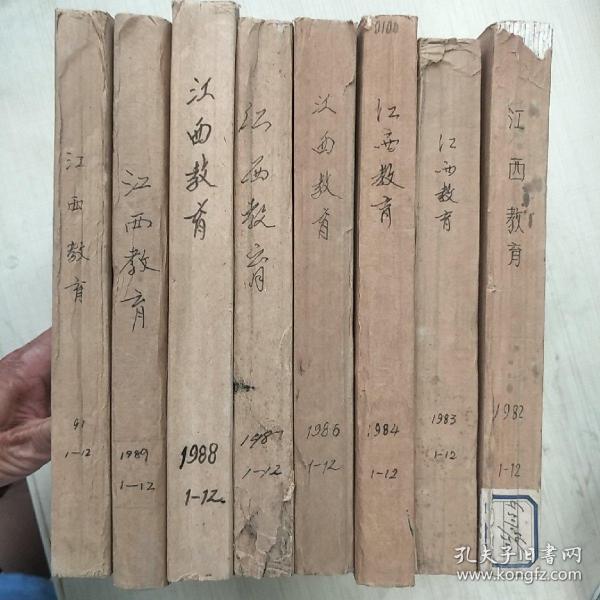 江西教育
91
1-12
江西教育
1989
1-12
江西教育
1988
1-12
江西教育
1987
1-12
江西教育
1986
1-12
0100
江西教育
1984
1-12
江西教育
1983
1-12
江西教育
1982
1-12
孔夫子旧书网
www.kongfz.com